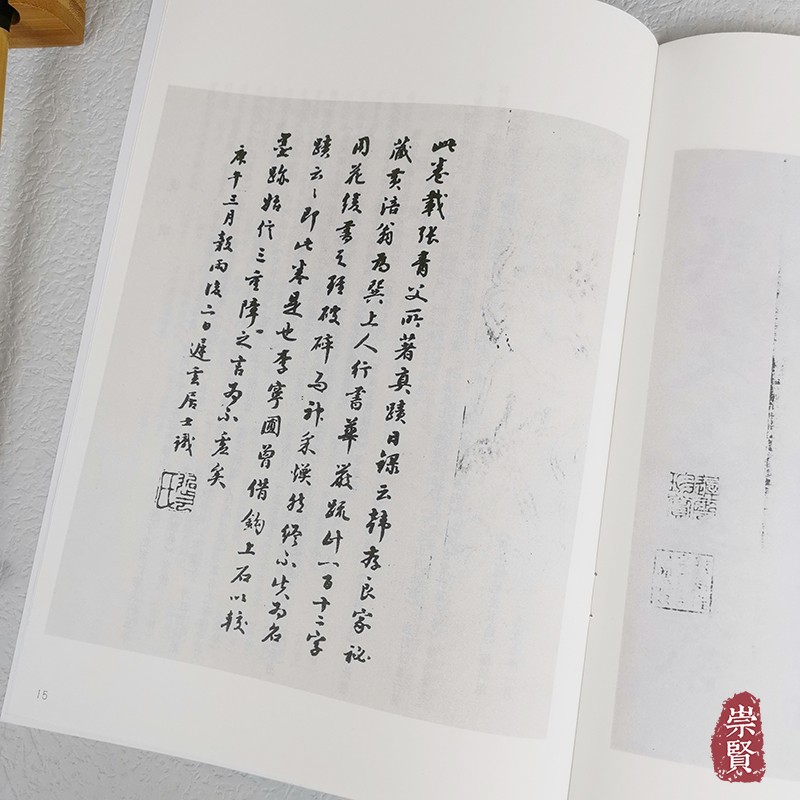 此卷載張青父所著真蹟日錄云韓存良家祕
藏黃涪翁為巽上人行書華嚴疏計一百十二字
用花綾書之雖破碎而神采煥然終不失為名
蹟云〻即此卷是也李寧圃曾借鈎上石以較
墨跡始信三重障之言為不虛矣
庚午三月穀雨後二日遲雲居士識
15
崇賢